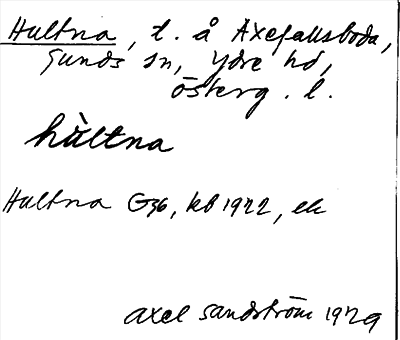 Hultna, t. å Axefallsboda,
Sunds sn, Ydre hd,
österg. l.
hùltna
Hultna G36, kb 1922, ek
Axel Sandström 1929